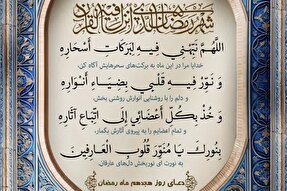 شهر رمضان الذی انزل فیه القرآن
اللَّهُمَّ نَبِّهْنِي فِيهِ لِبَرَكَاتِ أَسْحَارِهِ
خدایا مرا در این ماه به برکت‌های سحرهایش آگاه کن،
وَ نَوِّرْ فِيهِ قَلْبِي بِضِيَاءِ أَنْوَارِهِ
و دلم را با روشنایی انوارش روشنی بخش،
وَ خُذْ بِكُلِّ أَعْضَائِي إِلَى اتِّبَاعِ آثَارِهِ
و تمام اعضایم را به پیروی آثارش بگمار،
بِنُورِكَ يَا مُنَوِّرَ قُلُوبِ الْعَارِفِينَ
به نورت ای نوربخش دل‌های عارفان.
دعای روز هجدهم ماه رمضان